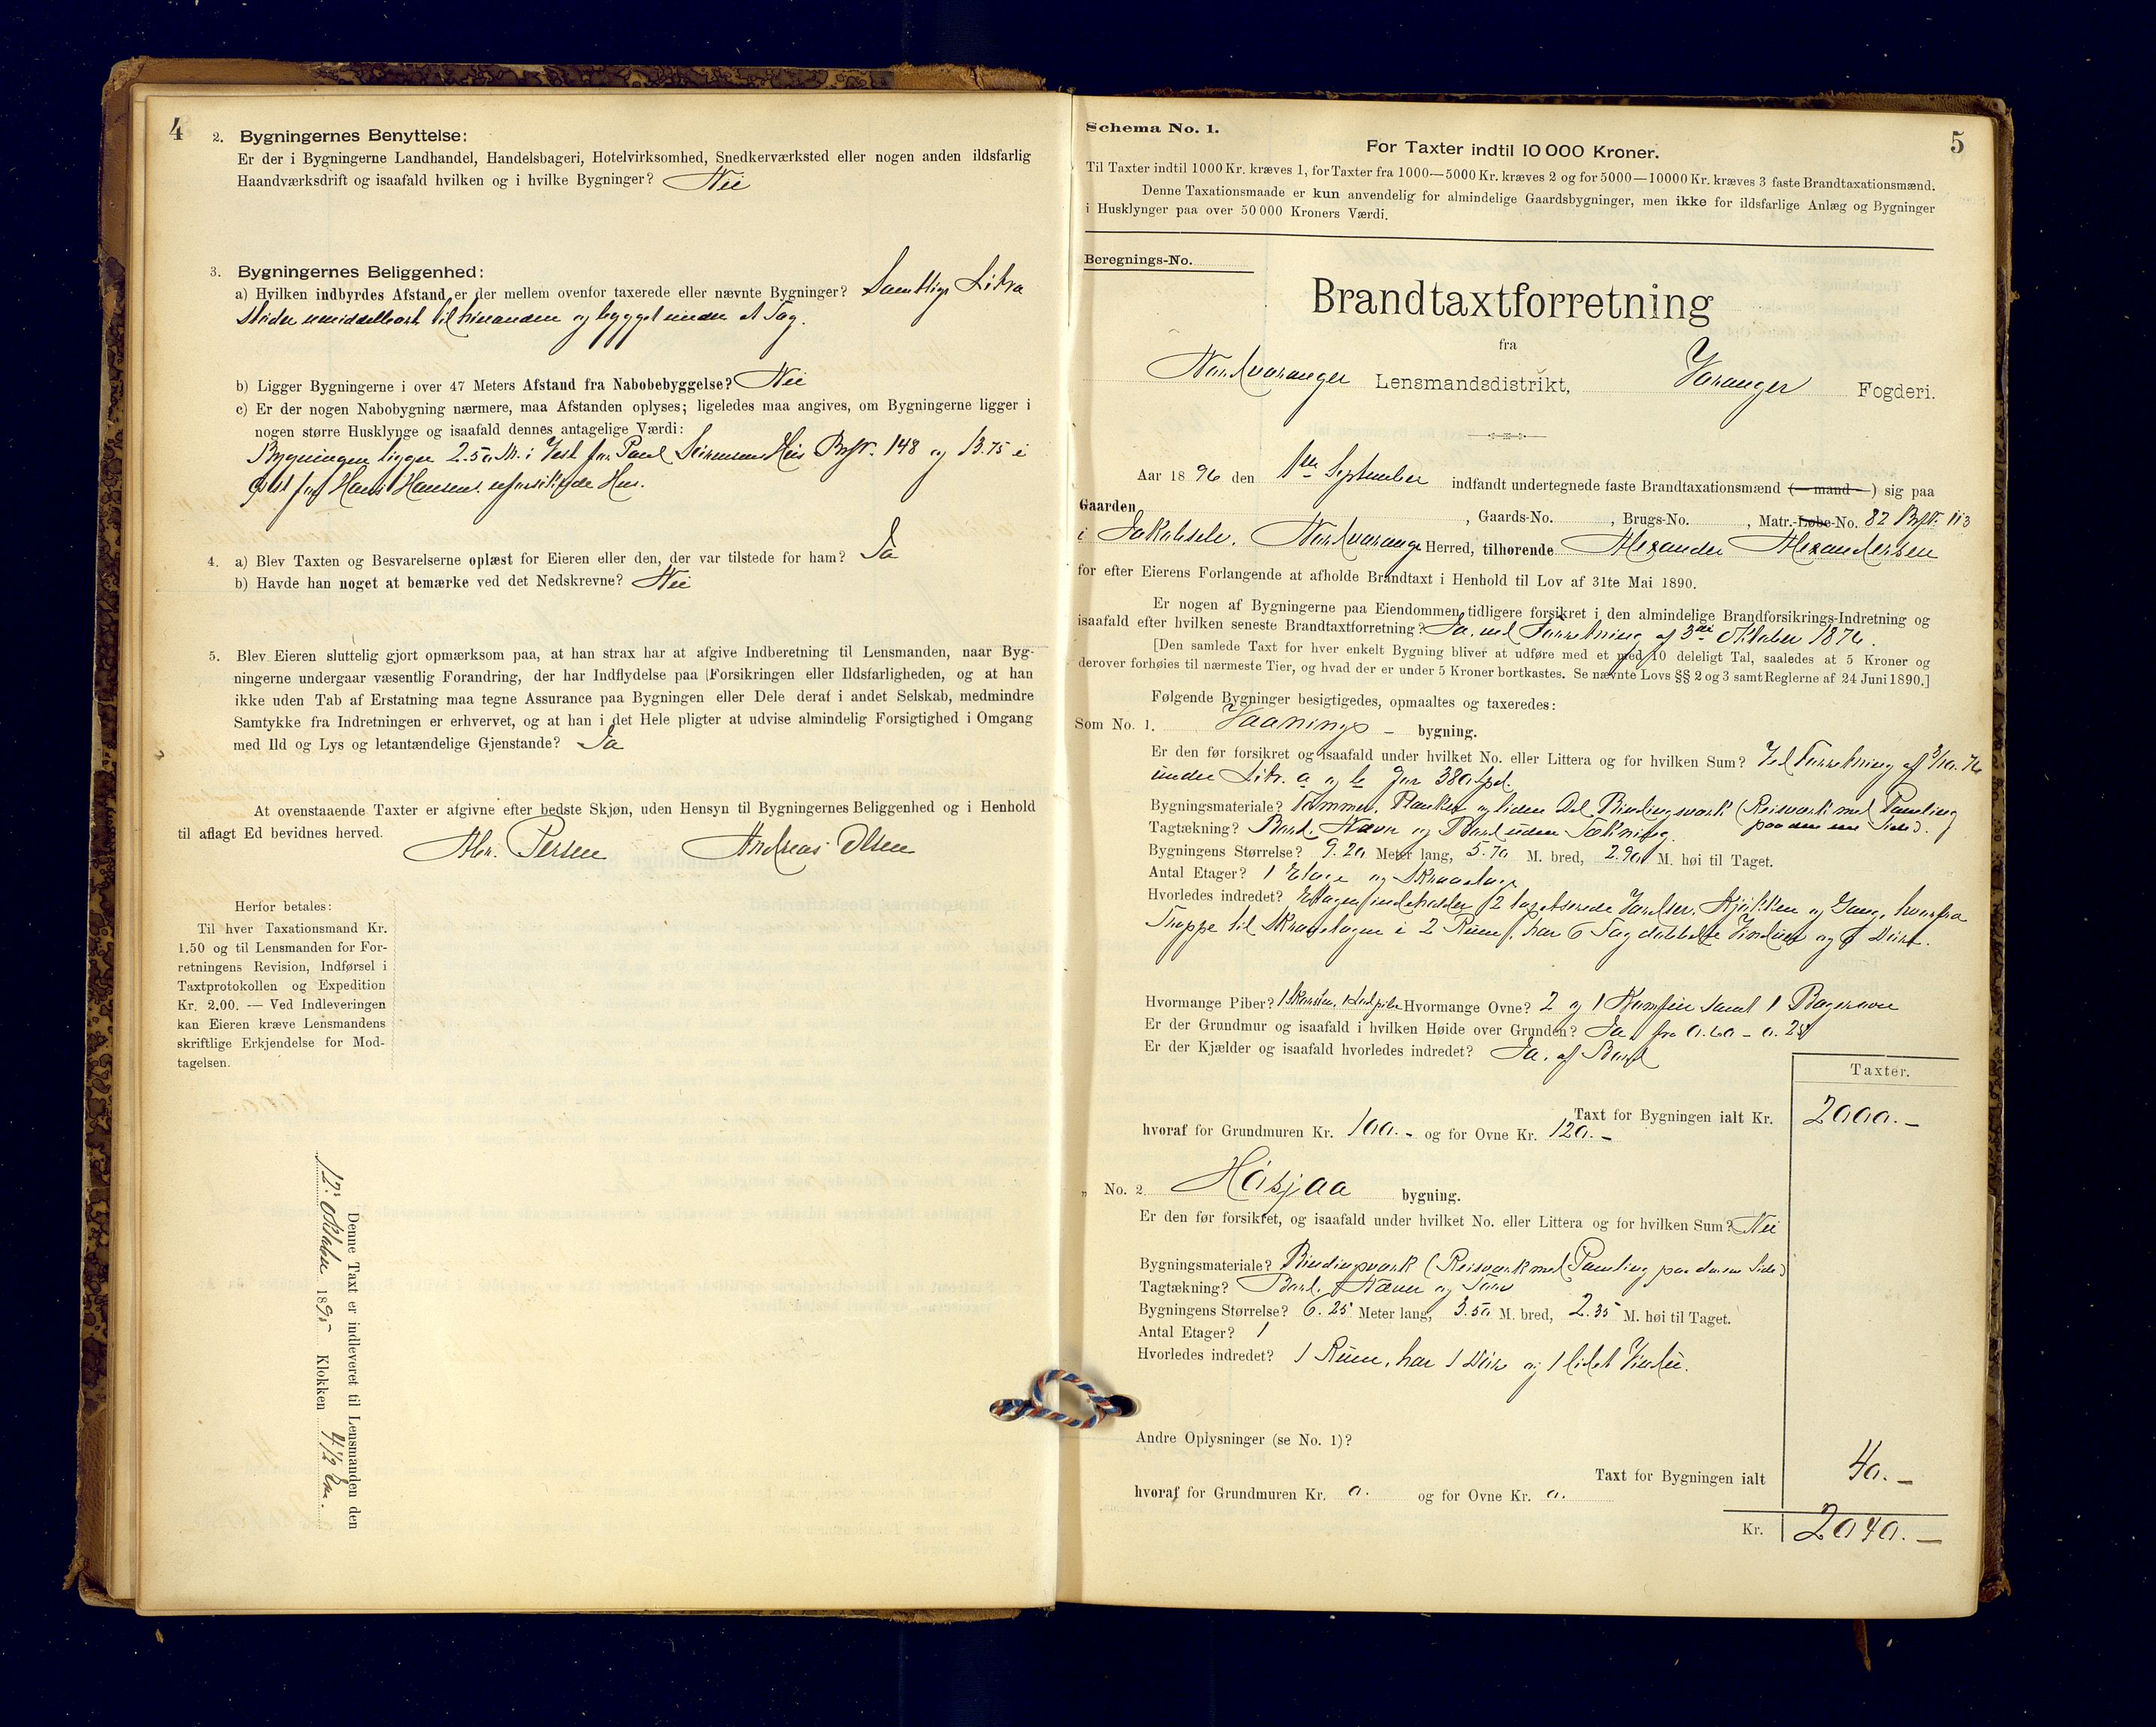 4
2. Bygningernes Benyttelse:
Er der i Bygningerne Landhandel, Handelsbageri, Hotelvirksomhed, Snedkerværksted eller nogen anden ildsfarlig
Haandværksdrift og isaafald hvilken og i hvilke Bygninger? Nei
3. Bygningernes Beliggenhed:
a) Hvilken indbyrdes Afstand er der mellem ovenfor taxerede eller nævnte Bygninger? Samtlige Litra
støder umiddelbart til hinanden og bygget under et Tag.
b) Ligger Bygningerne i over 47 Meters Afstand fra Nabobebyggelse? Nei
c) Er der nogen Nabobygning nærmere, maa Afstanden oplyses; ligeledes maa angives, om Bygningerne ligger i
nogen større Husklynge og isaafald dennes antagelige Værdi:
Bygningen ligger 2.50 M. i Vest for Paul Sørensens Hus 148 og 13.75 i
Øst for Hans Hansens uforsikrede Hus.
4. a) Blev Taxten og Besvarelserne oplæst for Eieren eller den, der var tilstede for ham? Ja
b) Havde han noget at bemærke ved det Nedskrevne? Nei
5. Blev Eieren sluttelig gjort opmærksom paa, at han strax har at afgive Indberetning til Lensmanden, naar Byg-
ningerne undergaar væsentlig Forandring, der har Indflydelse paa Forsikringen eller Ildsfarligheden, og at han
ikke uden Tab af Erstatning maa tegne Assurance paa Bygningen eller Dele deraf i andet Selskab, medmindre
Samtykke fra Indretningen er erhvervet, og at han i det Hele pligter at udvise almindelig Forsigtighed i Omgang
med Ild og Lys og letantændelige Gjenstande? Ja
At ovenstaaende Taxter er afgivne efter bedste Skjøn, uden Hensyn til Bygningernes Beliggenhed og i Henhold
til aflagt Ed bevidnes herved.
Persen Andreas Olsen
Herfor betales:
Til hver Taxationsmand Kr.
1.50 og til Lensmanden for For-
retningens Revision, Indførsel i
Taxtprotokollen og Expedition
Kr. 2.00. — Ved Indleveringen
kan Eieren kræve Lensmandens
skriftlige Erkjendelse for Mod-
tagelsen.
Denne Taxt er indleveret til Lensmanden den
12. Oktober 1895 Klokken 4 1/2 Em.
5
Schema No. 1.
For Taxter indtil 10 000 Kroner.
Til Taxter indtil 1000 Kr. kræves 1, for Taxter fra 1000—5000 Kr. kræves 2 og for 5000—10000 Kr. kræves 3 faste Brandtaxationsmænd.
Denne Taxationsmaade er kun anvendelig for almindelige Gaardsbygninger, men ikke for ildsfarlige Anlæg og Bygninger
i Husklynger paa over 50 000 Kroners Værdi.
Beregnings-No.
Brandtaxtforretning
fra
Nordvaranger Lensmandsdistrikt, Varanger Fogderi.
Aar 1896 den 1ste September indfandt undertegnede faste Brandtaxationsmænd (—mand—) sig paa
Gaarden , Gaards-No. , Brugs-No. , Matr.-Løbe-No. 82 113
i Jakobselv, Nordvaranger Herred, tilhørende Alexander Alexandersen
for efter Eierens Forlangende at afholde Brandtaxt i Henhold til Lov af 31te Mai 1890.
Er nogen af Bygningerne paa Eiendommen tidligere forsikret i den almindelige Brandforsikrings-Indretning og
isaafald efter hvilken seneste Brandtaxtforretning? Ja, ved Forretning af 3die Oktober 1876.
[Den samlede Taxt for hver enkelt Bygning bliver at udføre med et med 10 deleligt Tal, saaledes at 5 Kroner og
derover forhøies til nærmeste Tier, og hvad der er under 5 Kroner bortkastes. Se nævnte Lovs §§ 2 og 3 samt Reglerne af 24 Juni 1890.]
Følgende Bygninger besigtigedes, opmaaltes og taxeredes:
Som No. 1. Vaanings- bygning.
Er den før forsikret og isaafald under hvilket No. eller Littera og for hvilken Sum? Ved Forretning af 3/10. 76
under Litr. a og b for 380 Spd.
Bygningsmateriale? Tømmer, Planker og liden Del Bindingsværk (Reisværk med Paneling
paa den ene Side).
Tagtækning? Bord, Næver og Bord uden Tækning
Bygningens Størrelse? 9.20 Meter lang, 5.70 M. bred, 2.90 M. høi til Taget.
Antal Etager? 1 Etage og Skraaetage
Hvorledes indredet? Etagen indeholder 2 tapetserede Værelser, Kjøkken og Gang, hvorfra
Trappe til Skraaetagen i 2 Rum, har 6 Fag dobbelte Vinduer og Døre.
Hvormange Piber? 1 Skorsten, Hvormange Ovne? 2 og 1 Komfur samt 1 Bagerovn
Er der Grundmur og isaafald i hvilken Høide over Grunden? Ja, fra 0.60 - 0.25
Er der Kjælder og isaafald hvorledes indredet? Ja, af Bord
Taxter.
Taxt for Bygningen ialt Kr. 2000.-
hvoraf for Grundmuren Kr. 100.- og for Ovne Kr. 120.-
„ No. 2. Høsjaa bygning.
Er den før forsikret, og isaafald under hvilket No. eller Littera og for hvilken Sum? Nei
Bygningsmateriale? Bindingsværk (Reisværk med Paneling paa den ene Side)
Tagtækning? Bord, Næver og Torv
Bygningens Størrelse? 6.25 Meter lang, 3.50 M. bred, 2.35 M. høi til Taget.
Antal Etager? 1
Hvorledes indredet? 1 Rum, har 1 Dør og 1 lidet Vindu.
Andre Oplysninger (se No. 1)?
Taxt for Bygningen ialt 40.-
hvoraf for Grundmuren Kr. 0. og for Ovne Kr. 0.
Kr. 2040.-